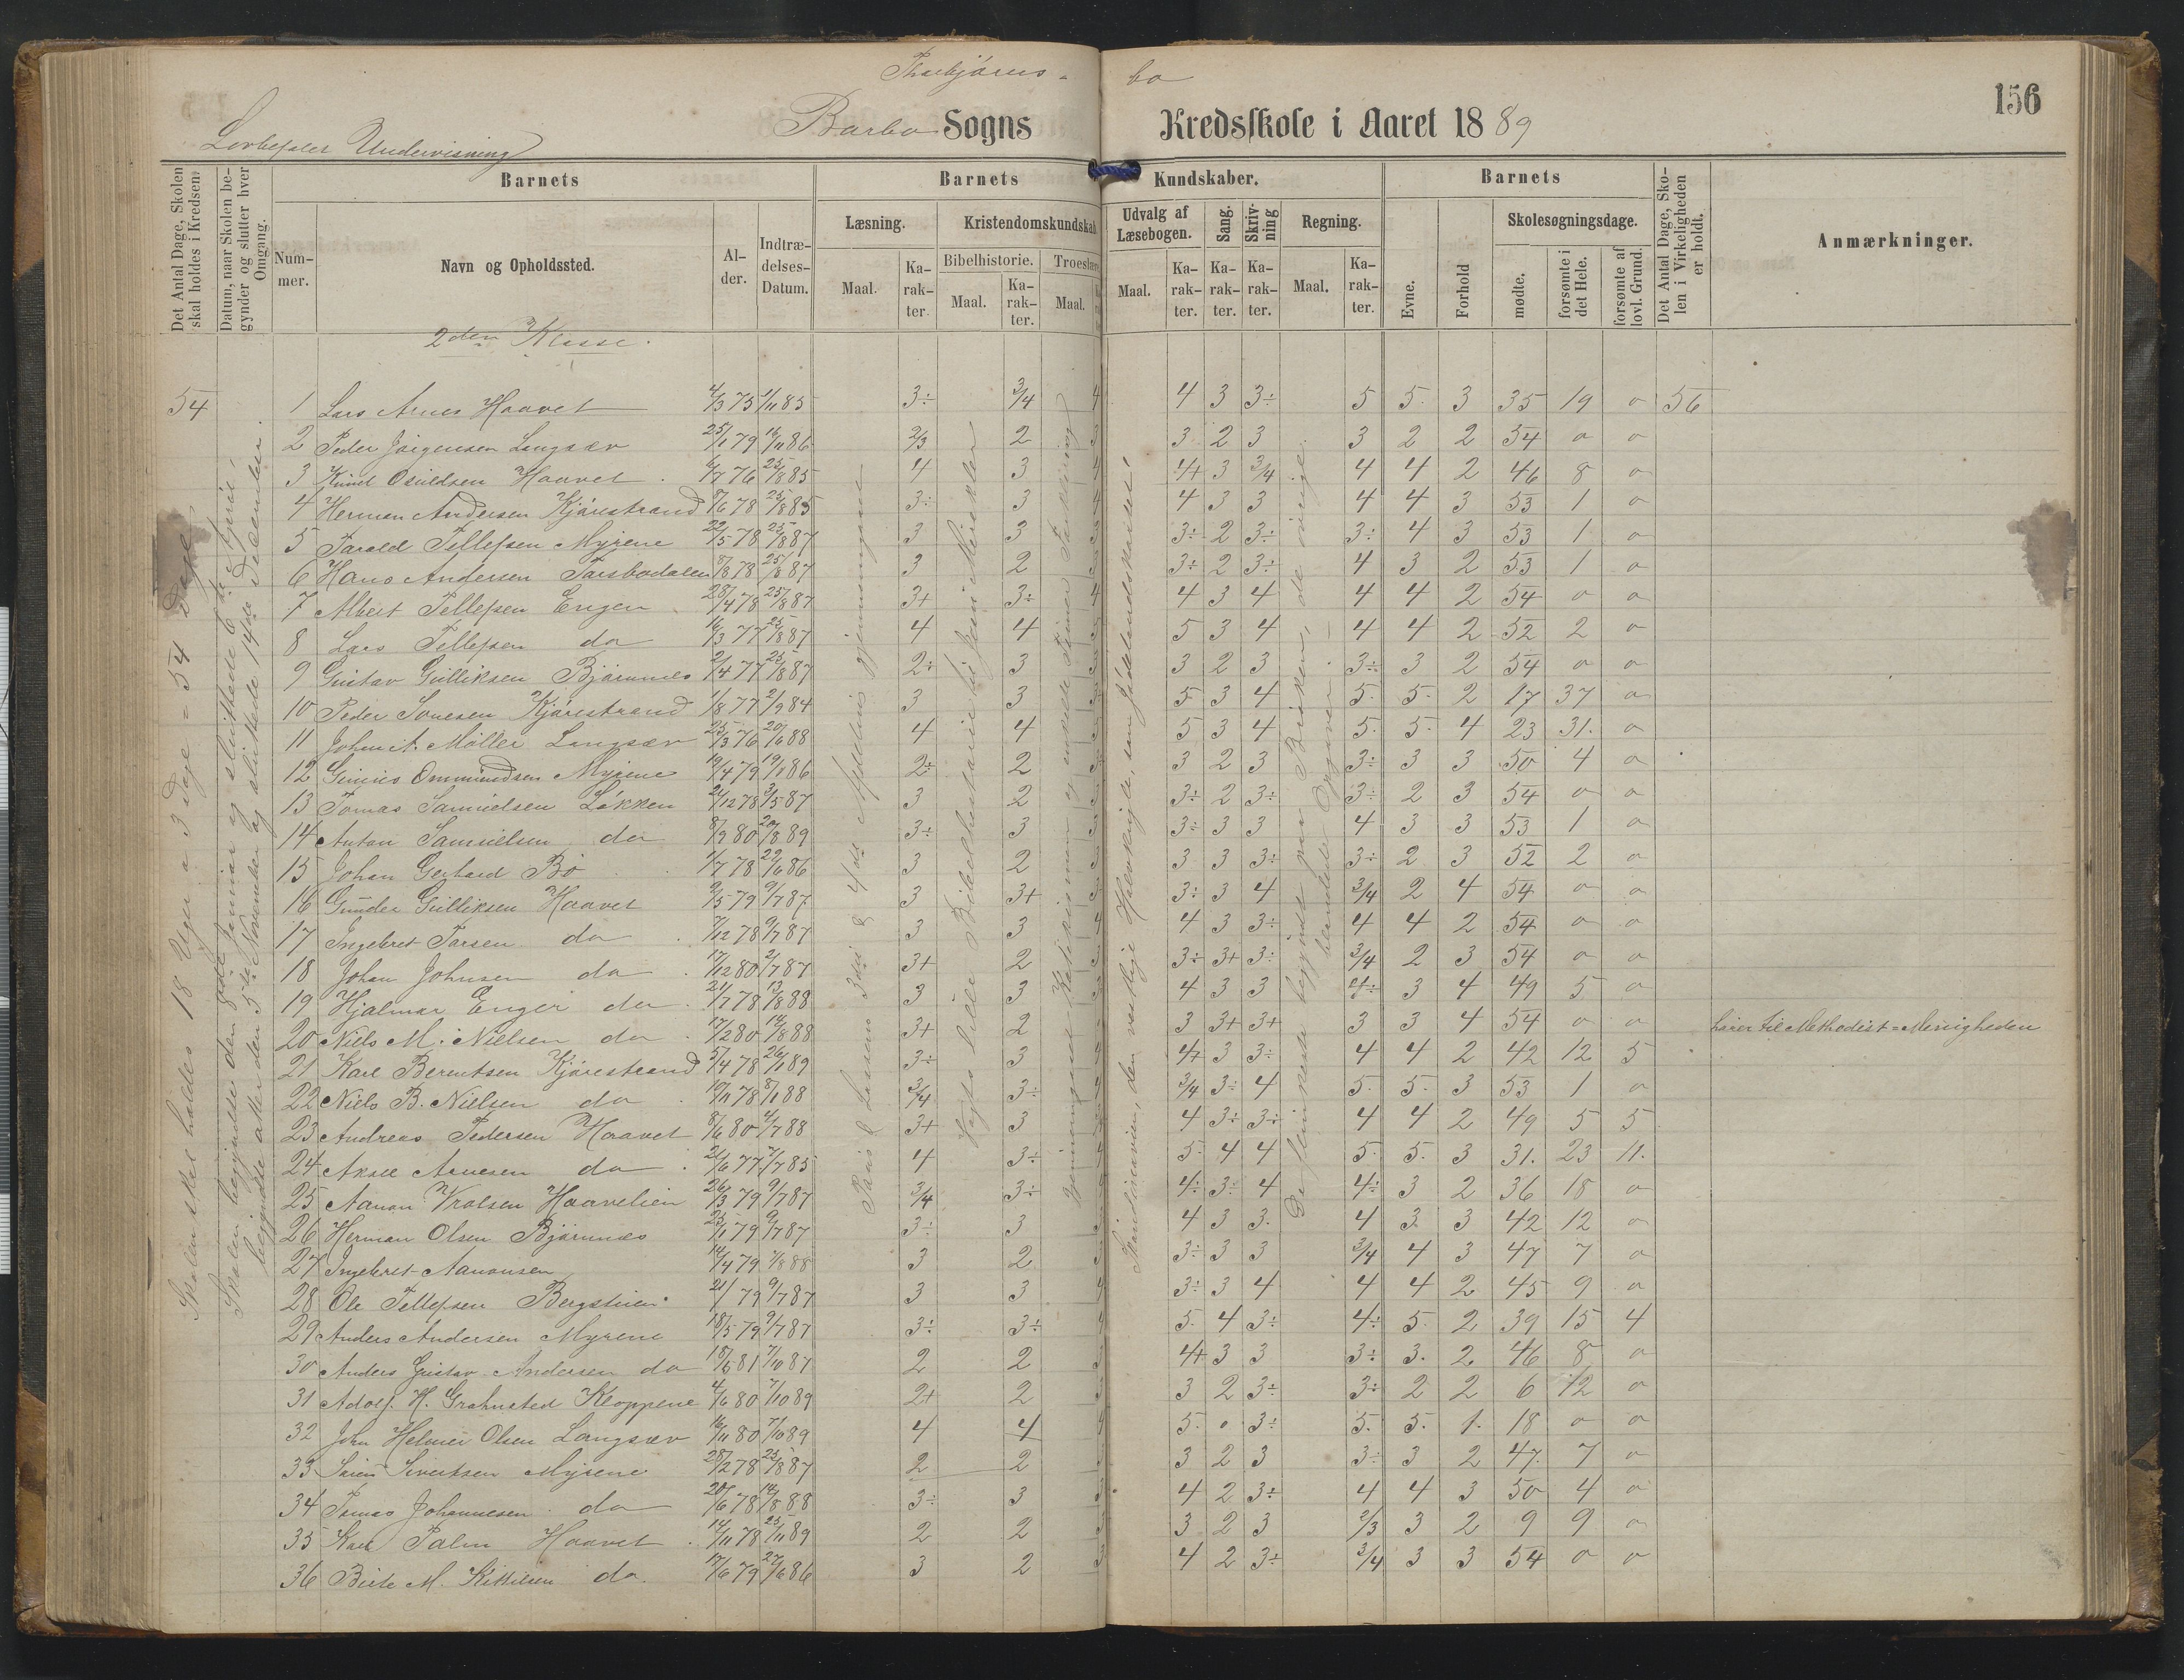 Thorbjørns- bo
156
Barbo Sogns Kredsskole i Aaret 1889
Lovbefalet Undervisning
Det Antal Dage, Skolen skal holdes i Kredsen.
Datum, naar Skolen begynder og slutter hver Omgang.
Barnets
Barnets Kundskaber.
Barnets
Det Antal Dage, Skolen i Virkeligheden er holdt.
Anmærkninger.
Nummer.
Navn og Opholdssted.
Alder.
Indtrædelses-Datum.
Læsning.
Kristendomskundskab
Udvalg af Læsebogen.
Sang.
Skrivning
Regning.
Evne.
Forhold
Skolesøgningsdage.
Maal.
Karakter.
Bibelhistorie.
Troeslære
Maal.
Karakter.
Maal.
Maal.
Karakter.
Karakter.
Karakter.
Maal.
Karakter.
mødte.
forsømte i det Hele.
forsømte af lovl. Grund.
2den Klasse.
54
Skolen skal holdes 18 Uger a 3 Dage = 54 Dage
1 Lars Arnes Haavet 4/3 75 1/11 85 3÷ 3/4 4 4 3 3÷ 5 5 3 35 19 0 56
2 Peder Jørgensen Langsæv 25/1 79 16/11 86 2/3 2 3 3 2 3 3 2 2 54 0 0
3 Knut Osuldsen Haavet 6/7 76 25/8 85 4 3 4 4+ 3 3/4 4 4 2 46 8 0
4 Herman Andersen Kjørestrand 9/6 78 25/8 85 3÷ 3 4 4 3 3 4 4 3 53 1 0
5 Tarald Tellefsen Myrene 22/5 78 25/8 87 3 3 3 3÷ 2 3÷ 3÷ 4 3 53 1 0
6 Hans Andersen Torsbodalen 8/8 78 25/8 87 3 2 3 3÷ 2 3÷ 4 3 2 53 1 0
7 Albert Tellefsen Engen 28/4 78 25/8 87 3+ 3÷ 4 4 3 4 4 4 2 54 0 0
8 Lars Tellefsen do 16/3 77 25/8 87 4 4 5 3 4 4 4 2 52 2 0
9 Gustav Gulliksen Bjørnnes 2/4 77 25/8 87 2÷ 3 3 3 2 3 3÷ 3 2 54 0 0
10 Peder Tonesen Kjørestrand 1/8 77 2/9 84 3 3 5 3 4 5 5 2 17 37 0
11 Johan A. Møller Langsæv 25/3 76 20/6 88 4 4 5 3 4 5 5 4 23 31 0
12 Ginius Ommundsen Myrene 19/4 79 19/1 86 2÷ 2 3 2 3 3÷ 3 3 50 4 0
13 Tomas Samuelsen Løkken 21/12 78 2/5 87 3 2 3 3÷ 2 3÷ 3÷ 2 3 54 0 0
14 Anton Samuelsen do 8/9 80 20/8 89 3÷ 3 3 3÷ 3 3 4 3 3 53 1 0
15 Johan Gerhard Bø 1/7 78 22/6 86 3 2 3 3 3 3÷ 3÷ 2 3 52 2 0
16 Gunder Gulliksen Haavet 9/5 79 9/7 87 3 3+ 3 3÷ 3 4 3/4 2 4 54 0 0
17 Ingebret Tarsen do 7/12 78 9/7 87 3 3 4 4 3 3÷ 4 4 2 54 0 0
18 Johan Johnsen do 17/12 80 2/7 87 3+ 2 3 3÷ 3+ 3÷ 3/4 2 3 54 0 0
19 Hjalmar Enger do 21/7 78 13/8 88 3 3 3 4 3 3 4÷ 3 4 49 5 0
20 Niels M. Nielsen do 17/2 80 14/8 88 3+ 2 3 3+ 3+ 3 3 4 54 0 0 hører til Methodist=Menigheden
21 Karl Berentsen Kjørestrand 5/4 78 26/1 89 3÷ 3 4+ 3 3÷ 4 4 2 42 12 5
22 Niels B. Nielsen do 19/11 78 8/1 88 3/4 3÷ 4 3/4 3÷ 4 5 5 3 53 1 0
23 Andreas Pedersen Haavet 8/6 80 4/7 88 3+ 3 4 3÷ 3÷ 4 4 2 49 5 5
24 Aksel Arnesen do 21/6 77 7/7 85 4 3÷ 5 4 4 5 5 3 31 23 11
25 Aanon Vrolsen Haavelien 26/3 79 9/7 87 3/4 3÷ 4÷ 3÷ 4 4÷ 3 2 36 18 0
26 Herman Olsen Bjørnnes 25/1 79 9/7 87 3÷ 3 4 3 3 4 3 3 42 12 0
27 Ingebret Aanonsen 14/4 79 7/8 88 3 2 3÷ 3 3 3/4 4 3 47 7 0
28 Ole Tellefsen Bergstuen 21/ 79 9/7 87 3 3 4 3÷ 3 4 4 4 2 45 9 0
29 Anders Andersen Myrene 18/5 79 9/7 87 3÷ 3÷ 4 5 4 3÷ 4÷ 5 2 39 15 4
30 Anders Gustav Andersen do 18/5 81 7/10 87 2 2 3 4+ 3 3 3÷ 3 2 46 8 0
31 Adolf. H. Grahnsted Kloppene 4/6 80 7/10 89 2+ 2 3 3 2 3÷ 3÷ 2 2 6 12 0
32 John Helmer Olsen Langsæv 16/11 80 7/10 89 4 4 4 5 0 3÷ 5 5 1 18 0 0
33 Søren Sivertsen Myrene 28/2 78 25/8 87 2 2 3 3 2 3 3÷ 3 2 47 7 0
34 Tomas Johannesen do 20/6 78 14/8 88 3÷ 3 3 4 2 3÷ 4 4 3 50 4 0
35 Karl Palm Haavet 14/11 78 25/11 89 2 2 3 3 2 3 2/3 3 2 9 9 0
36 Birte M. Kittilsen do. 17/6 79 27/6 86 3 2 3 4 2 3÷ 3/4 3 3 54 0 0
Skolen begyndte den Januar og sluttede 6te April,
begyndte atter den 5te November og sluttede 14de December.
Paus & Lassens 3die & 4de Afdeling gjennemgaaet
Vogts lille Bibelhistorie til Jesu Mirakler
Skandinavien, den vestlige Halvkugle, samt Jødelandskartet.
De flinkeste begyndt paa Brøken, de øvrige blandede Opgaver.